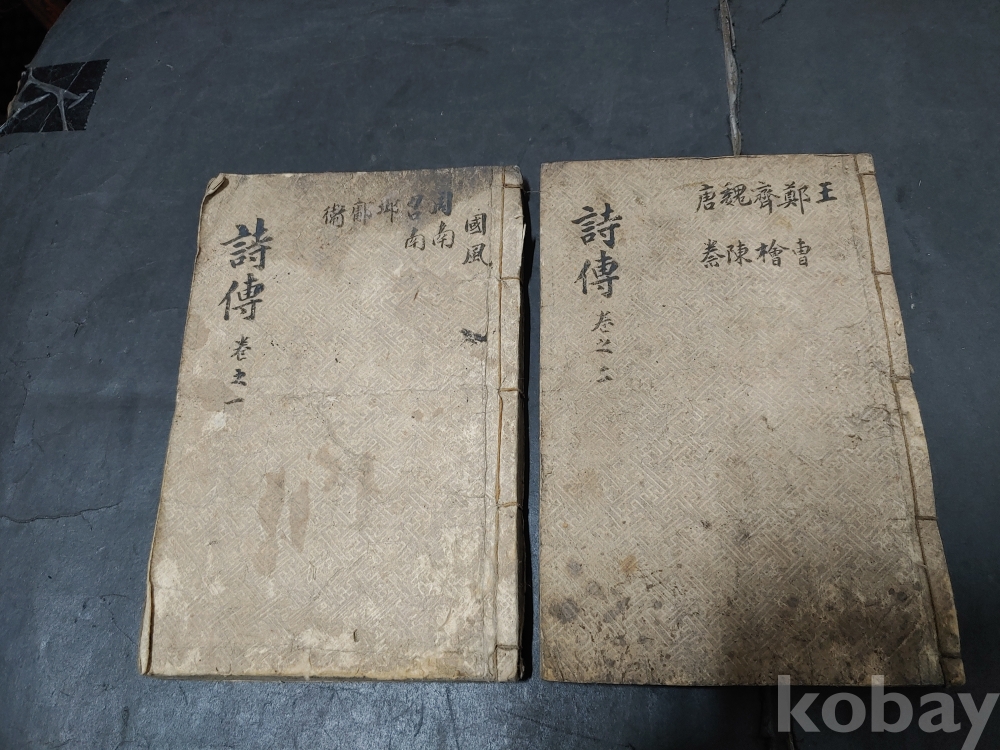 國風
周南
召南
邶
鄘
衛
詩傳 卷之一
王鄭齊魏唐
秦陳檜曹
詩傳 卷之二
kobay